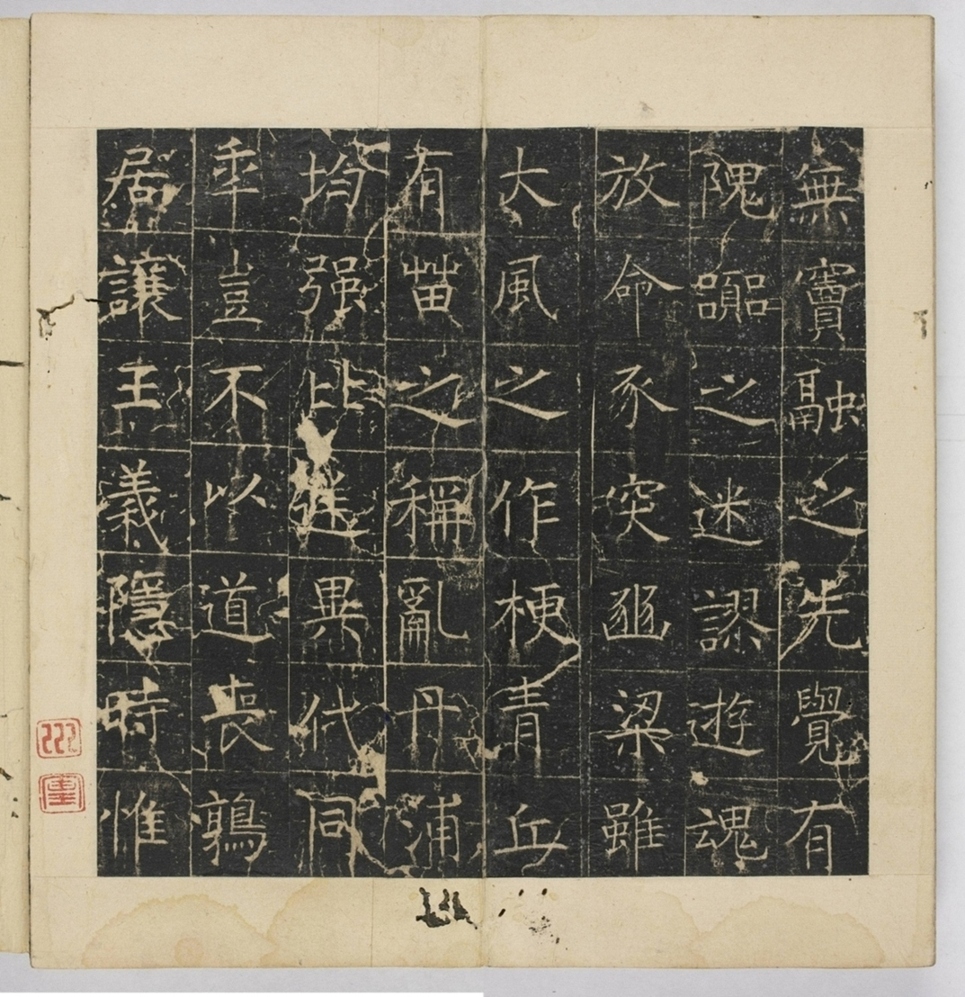 無竇融之先覺有
隗囂之迷謬遊魂
放命豕突豳梁雖
大風之作梗青丘
有苗之稱亂丹浦
均强比迷異代同
乖豈不以道喪鶉
居讓王義隱時惟